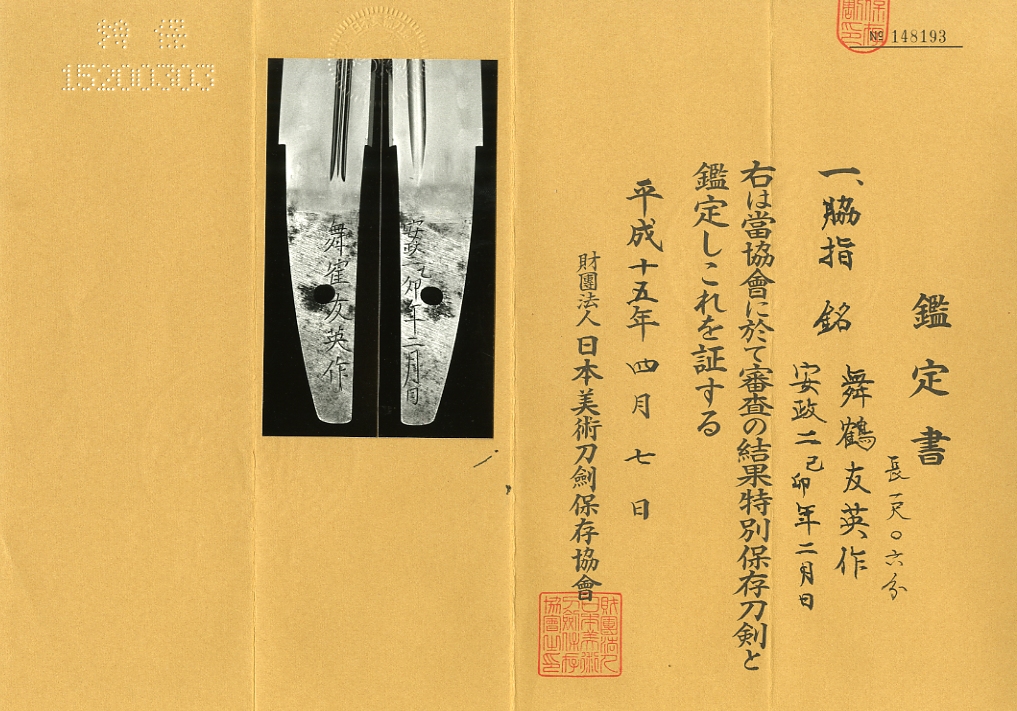 № 148193
鑑定書
一、脇指 銘 舞鶴友英作
長一尺〇六分
安政二己卯年二月日
右は當協會に於て審査の結果特別保存刀剣と
鑑定しこれを証する
平成十五年四月七日
財團法人日本美術刀劍保存協會
財團法人
日本美術
刀劍保存
協會之印
舞寉友英作
安政二乙卯年二月日
特保
15200303